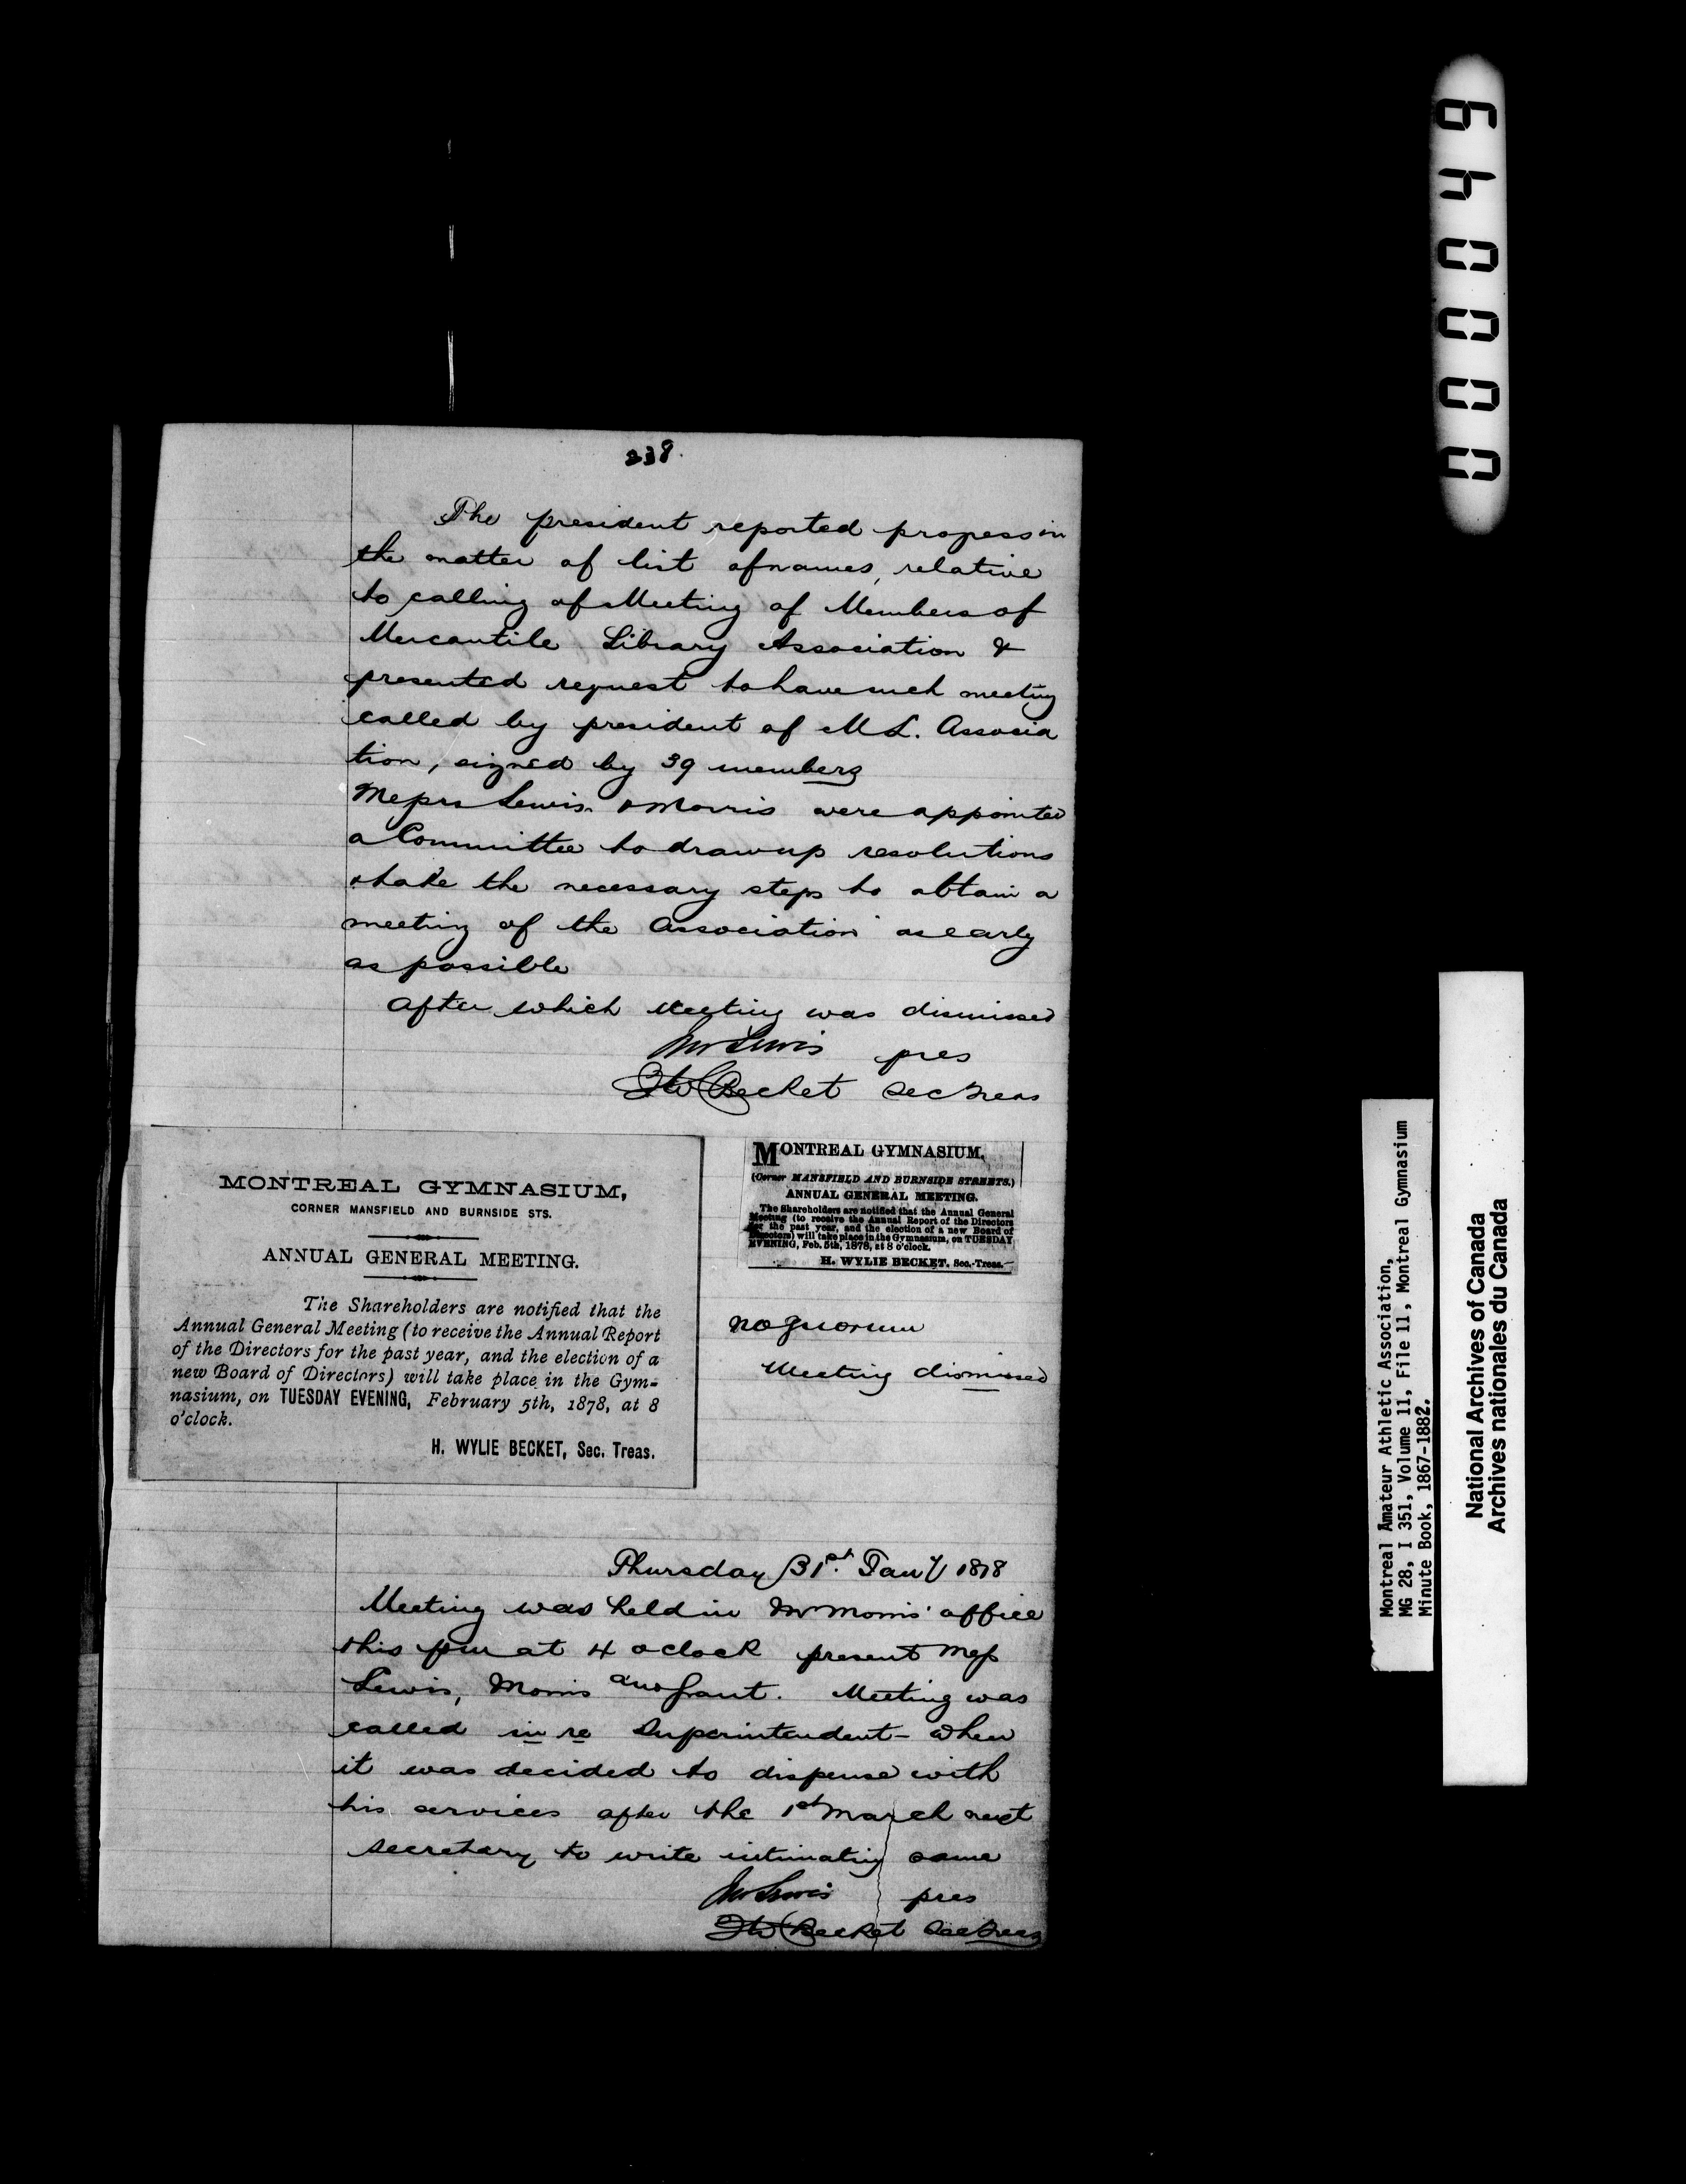 238.
The president reported progess in
the matter of list of names, relative
to calling of Meeting of Members of
Mercantile Library Association &
presented request to have such meeting
called by president of M L. Associa
tion, signed by 39 members
Messrs Lewis & Morris were appointed
a Committee to draw up resolutions
& take the necessary steps to obtain a
meeting of the Association as early
as possible
After which Meeting was dismissed
Lewis pres
HW Becket Sec Treas
MONTREAL GYMNASIUM,
CORNER MANSFIELD AND BURNSIDE STS.
ANNUAL GENERAL MEETING.
The Shareholders are notified that the
Annual General Meeting (to receive the Annual Report
of the Directors for the past year, and the election of a
new Board of Directors) will take place in the Gym-
nasium, on TUESDAY EVENING, February 5th, 1878, at 8
o'clock.
H. WYLIE BECKET, Sec. Treas.
MONTREAL GYMNASIUM,
(Corner MANSFIELD AND BURNSIDE STREETS.)
ANNUAL GENERAL MEETING.
The Shareholders are notified that the Annual General
Meeting (to receive the Annual Report of the Directors
for the past year, and the election of a new Board of
Directors) will take place in the Gymnasium, on TUESDAY
EVENING, Feb. 5th, 1878, at 8 o'clock.
H. WYLIE BECKET, Sec.-Treas.
no quorum
Meeting dismissed
Thursday 31st. Jany 1878
Meeting was held in Mr Morris' office
this pm at 4 oclock present Mess
Lewis, Morris and Grant. Meeting was
called in re Superintendent - when
it was decided to dispense with
his services after the 1st March next
secretary to write intimating same
Lewis pres
HW Becket Sec Treas
000049
Montreal Amateur Athletic Association,
MG 28, I 351, Volume 11, File 11, Montreal Gymnasium
Minute Book, 1867-1882.
National Archives of Canada
Archives nationales du Canada